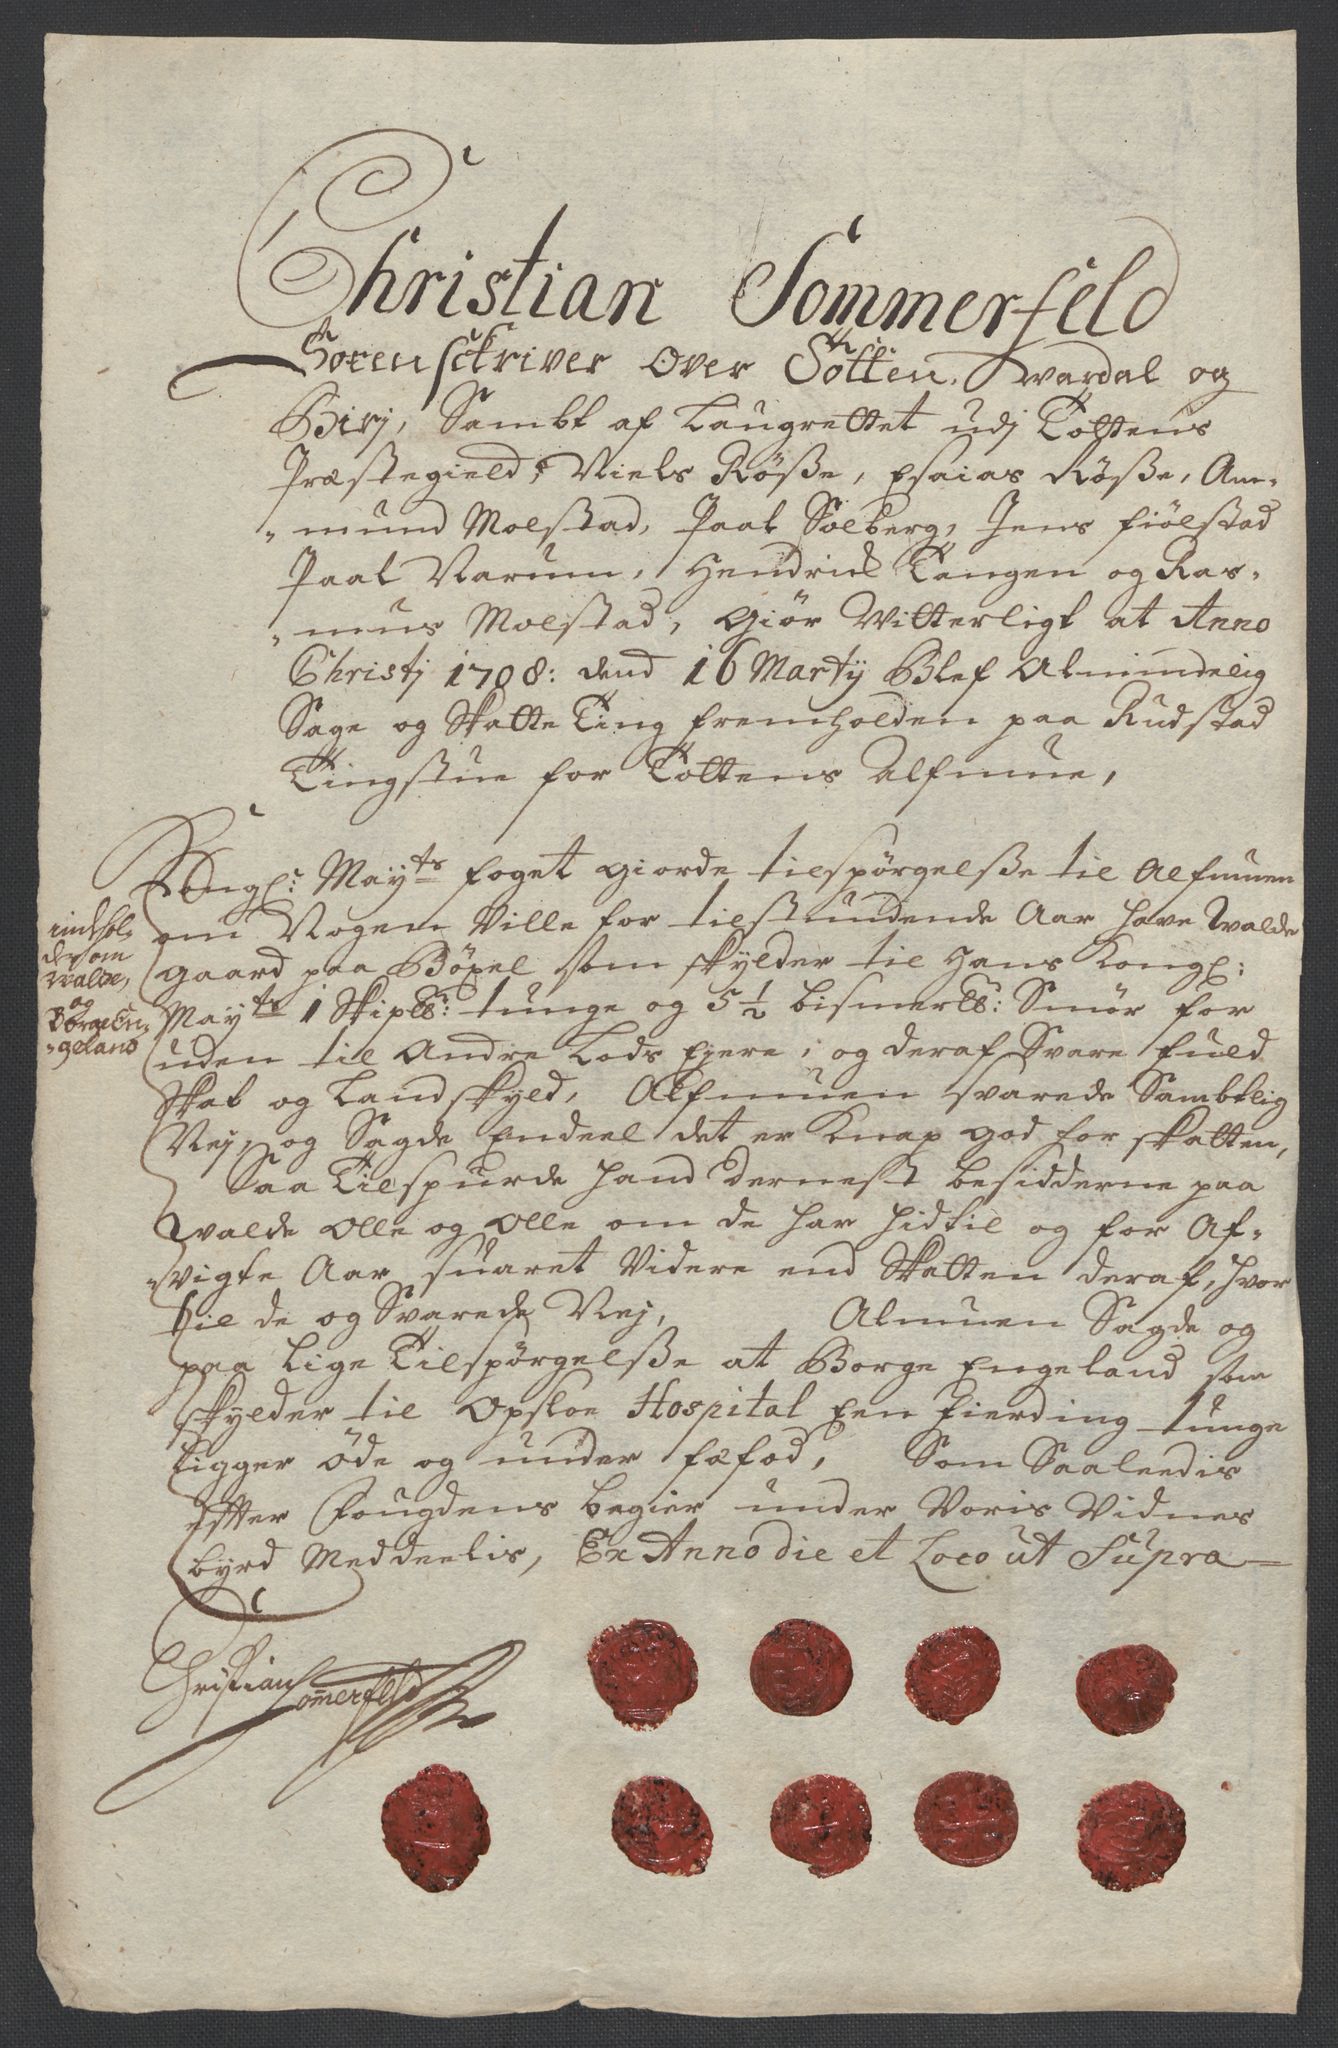 Christian Sommerfeld
Sorenskriver over Totten, Wardal og
Birj, Sambt af Laugrettet udj Tottens
Præstegield, Niels Røsße, Esaias Røsße, Am-
-mund Molstad, Paal Solberg, Jens Fiølstad
Paal Narum, Hendrick Tangen og Ras-
-mus Molstad, Giør Witterligt at Anno
Christj 1708: dend 16 Martij Blef Almindelig
Sage og Skatte Ting fremholden paa Rudstad
Tingstue for Tottens Alfmue,
Kongl: Mayts foget giorde tilspørgelsße til Alfmuen
om Nogen Ville for tilstundende Aar have Walde
gaard paa Bøxel som skylder til Hans Kongl:
Mayts 1 Skip℔: tunge og 5½ bismer℔: Smør for
uden til Andre Lods Ejere, og deraf Svare fuld
Skat og Landskyld, Alfmuen svarede Sambtlig
Nej, og Sagde Endeel det er knap god for skatten,
Saa Tilspurde hand dernest besidderne paa
Walde Olle og Olle om de har hidtil og for Af-
-vigte Aar suaret Videre end Skatten deraf, hvor
til de og Svarede Nej, Almuen Sagde og
paa lige Tilspørgelsße at Borge Engeland som
skylder til Opsloe Hospital Een fierding tunge
ligger øde og under fæfod, Som Saaleedis
efter Fougdens begier under Voris Vidnes
byrd Meddeelis, Ex Anno die et Loco ut Supra
indhol-
der om
Walde,
og
Borge En-
-geland
Christian Somerfeld